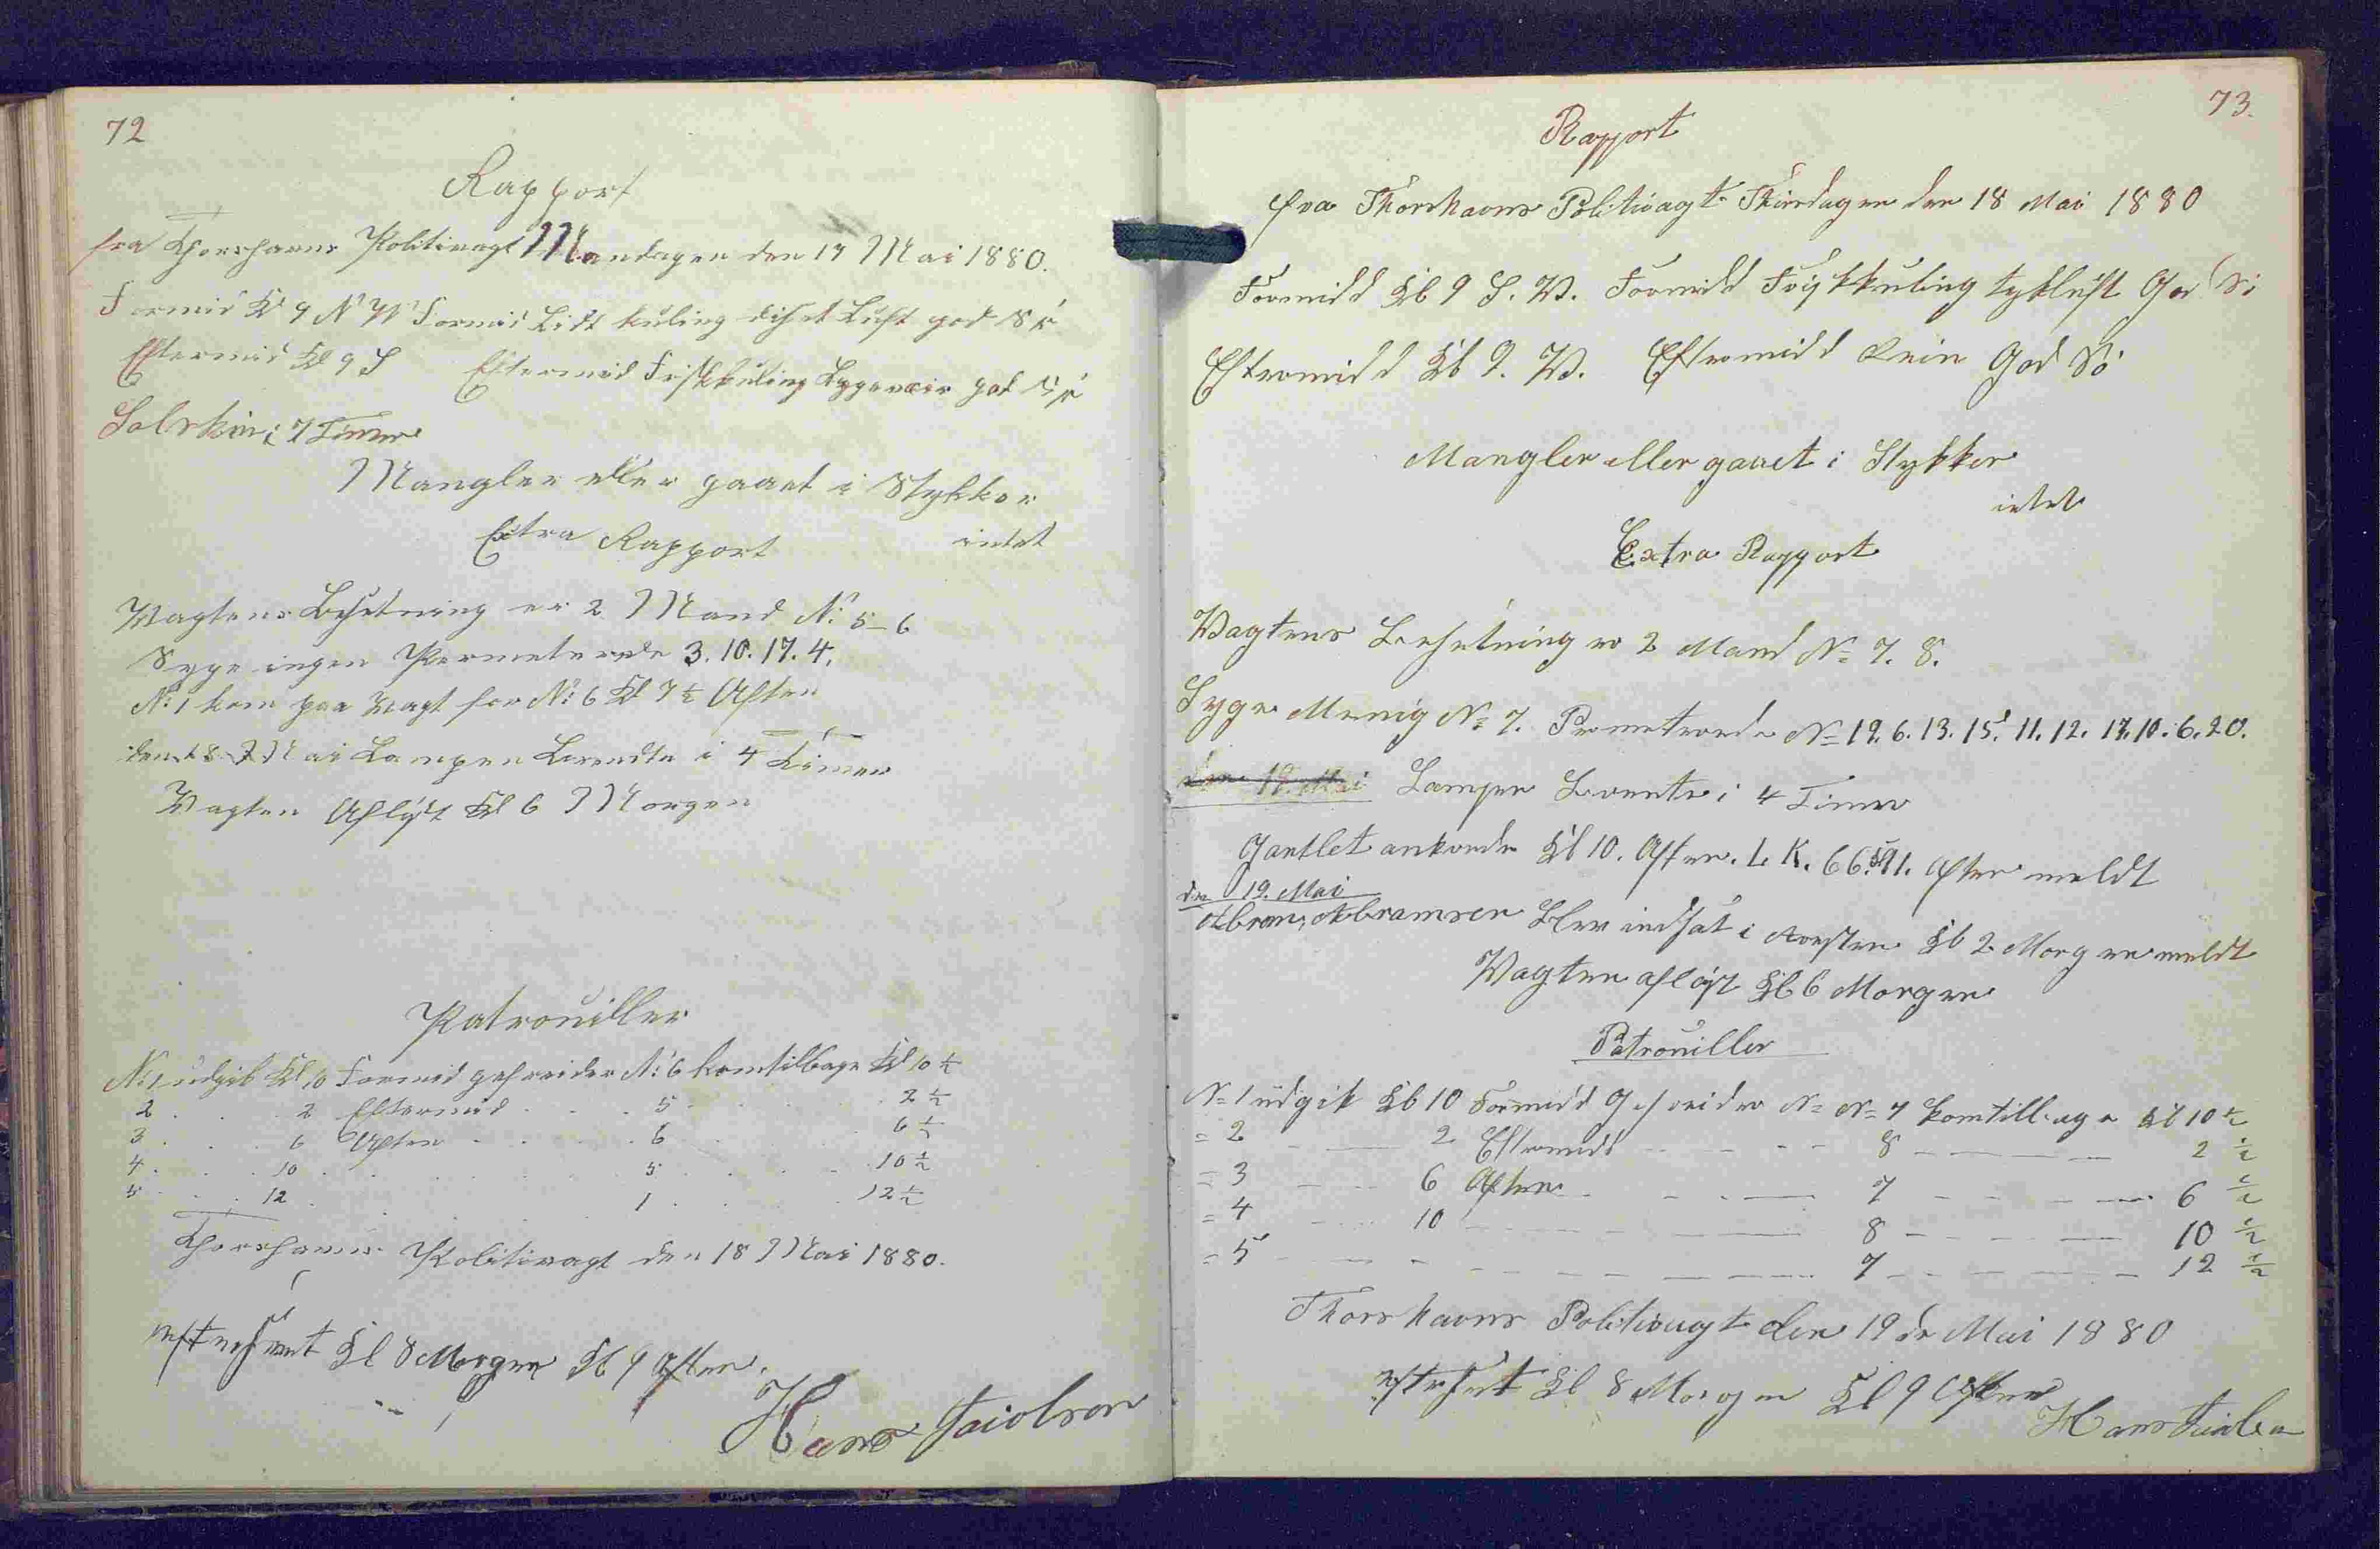 72
Rapport
fra Thorshavns Politivagt Mandagen den 17 Mai 1880.
Formid Kl 9 N W Formid Lidt kuling diset Luft god Sö
Eftermid Kl 9 S Eftermid Friskkuling Bygeveir god Sö
Solskin i 7 Timer
Mangler eller gaaet i Stykker
intet
Extra Rapport
Vagtens Besetning er 2 Mand No 5-6
Syge ingen Permeterede 3. 10. 17. 4.
No 1 kom paa Vagt for No 6 Kl 7½ Aften
den 18 Mai Lampen Brendte i 4 Timer
Vagten Aflöst Kl 6 Morgen
Patrouiller
No 1 udgik Kl 10 Formid gefreider No 6 kom tilbage Kl 10½
2 . . . 2 Eftermid . . . 5 . . . 2½
3 . . . 6 Aften . . . 6 . . . 6½
4 . . . 10 . . . 5 . . . 10½
5 . . . 12 . . . 1 . . . 12½
Thorshavns Politivagt den 18 Mai 1880.
efterseet Kl 8 Morgen Kl 9 Aften.
Hans
73.
Rapport
fra Thorshavns Politivagt Thirsdagen den 18 Mai 1880
Formidd Kl 9 S. V. Formidd Friskkuling tykluft God Sö
Eftermidd Kl 9. V. Eftermidd Rein God Sö
Mangler eller gaaet i Stykker
intet
Extra Rapport
Vagtens Besetning er 2 Mand No 7. 8.
Syge Menig No 7. Permeterede No 19. 6. 13. 15. 11. 12. 17. 10. 6. 20.
den 19. Mai Lampen Brente i 4 Timer
Gantlet ankomde Kl 10. Aften. L. K. Aften meldt
den 19. Mai
Abram, Abramsen Blev indsat i Aresten Kl 2 Morgen meldt
Vagten aflöst Kl 6 Morgen
Patrouiller
No 1 udgik Kl 10 Formidd Gefreider No No 7 kom tilbage Kl 10½
= 2 — 2 Eftermidd — 8 — 2½
= 3 — 6 Aften — 7 — 6½
= 4 — 10 — 8 — 10½
= 5 — 7 — 12½
Thorshavns Politivagt den 19de Mai 1880
efterseet Kl 8 Morgen Kl 9 Aften
Hans